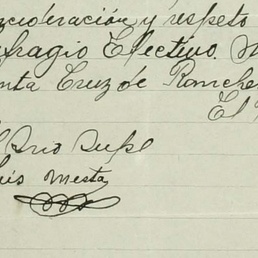 consideración y respeto
fragio Electivo.
nta Cruz de
El
Srio Supl
uis Mesta